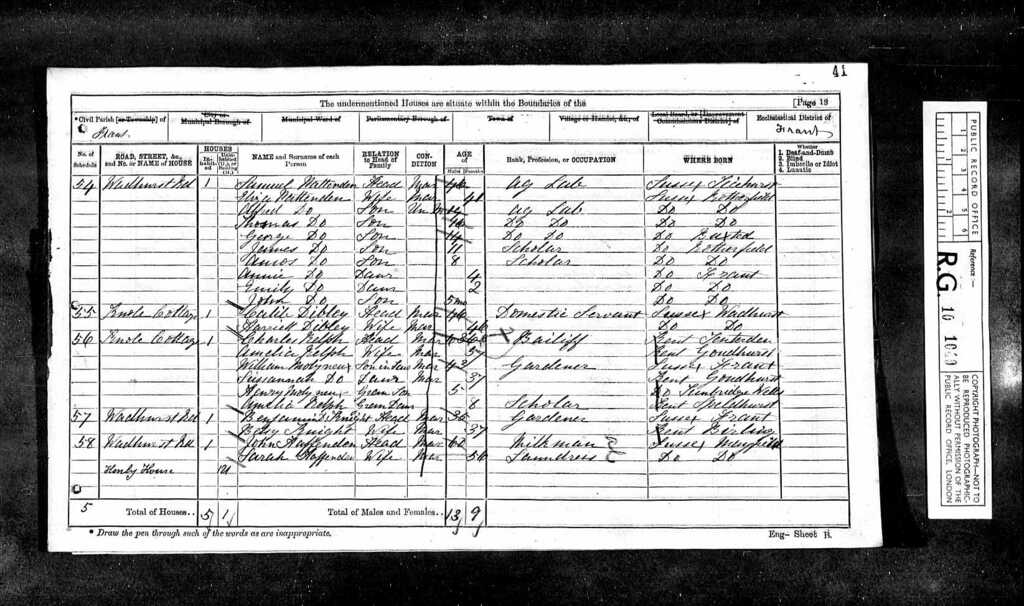 41
The undermentioned Houses are situate within the Boundaries of the
[Page 19
*Civil Parish [or Township] of
City or Municipal Borough of
Municipal Ward of
Parliamentary Borough of
Town of
Village or Hamlet, &c., of
Local Board, or [Improvement Commissioners District] of
Ecclesiastical District of
Frant
Frant
No. of Schedule
ROAD, STREET, &c., and No. or NAME of HOUSE
HOUSES
Inhabited
Uninhabited (U.), or Building (B.)
NAME and Surname of each Person
RELATION to Head of Family
CONDITION
AGE of
Males
Females
Rank, Profession, or OCCUPATION
WHERE BORN
Whether
1. Deaf-and-Dumb
2. Blind
3. Imbecile or Idiot
4. Lunatic
54 Wadhurst Rd 1 Samuel Nattenden Head Mar Ag Lab Sussex Ticehurst
Eliza Nattenden Wife Mar 41 Sussex Rotherfield
Alfred Do Son Un Ag Lab Do Do
Thomas Do Son Do Do Do Do
George Do Son Do Do Do Buxted
James Do Son 11 Scholar Do Rotherfield
Amos Do Son 8 Scholar Do Do
Annie Do Daur 4 Do Frant
Emily Do Daur 2 Do Do
John Do Son 5 mo Do Do
55 Knole Cottage 1 Dibley Head Mar Domestic Servant Sussex Wadhurst
Harriett Dibley Wife Mar 46 Do Do
56 Knole Cottag 1 Charles Relph Head Mar Bailiff Kent Tenterden
Amelia Relph Wife Mar 57 Kent Goudhurst
William Molyneux Son in Law Mar 42 Gardener Sussex Frant
Susannah Do Daur Mar 37 Kent Goudhurst
Henry Molyneux Gran Son 5 Do Tunbridge Wells
Amelia Relph Gran Daur 8 Scholar Kent Speldhurst
57 Wadhurst Rd 1 Benjamin Knight Head Mar 35 Gardener Sussex Frant
Knight Wife Mar 37 Kent Birling
58 Wadhurst Rd 1 John Haffenden Head Mar 62 Milkman Sussex Mayfield
Sarah Haffenden Wife Mar 56 Laundress Do Do
Henly House 1U
5 Total of Houses.. 5 1 Total of Males and Females.. 13 9
* Draw the pen through such of the words as are inappropriate.
Eng- Sheet B.
PUBLIC RECORD OFFICE
1 2 3 4 5 6
1 2
Reference :-
R.G. 10
COPYRIGHT PHOTOGRAPH—NOT TO BE REPRODUCED PHOTOGRAPHICALLY WITHOUT PERMISSION OF THE PUBLIC RECORD OFFICE, LONDON